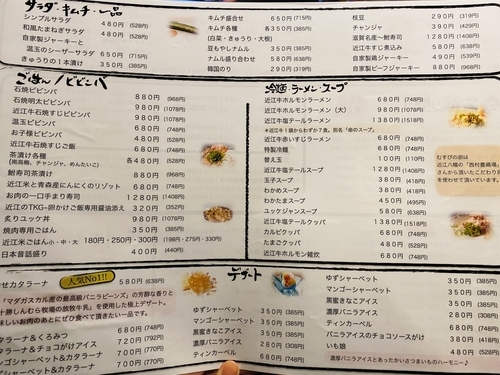 サラダ・キムチ・一品
シンプルサラダ 480円 (528円)
和風たまねぎサラダ 480円 (528円)
自家製ジャーキーと
温玉のシーザーサラダ 650円 (715円)
きゅうりの1本漬け 350円 (385円)
キムチ盛合せ 650円 (715円)
キムチ各種 各350円 (385円)
(白菜・きゅうり・大根)
豆もやしナムル 350円 (385円)
ナムル盛り合わせ 580円 (638円)
韓国のり 290円 (319円)
枝豆 290円 (319円)
チャンジャ 390円 (429円)
滋賀名産〜鮒寿司 980円 (1078円)
近江牛すじ煮込み 580円 (638円)
自家製鶏ジャーキー 490円 (539円)
自家製ビーフジャーキー 880円 (968円)
ごはん/ビビンバ
石焼ビビンバ 880円 (968円)
石焼明太ビビンバ 980円 (1078円)
近江牛石焼ビビンバ 980円 (1078円)
温玉ビビンバ 680円 (748円)
お子様ビビンバ 480円 (528円)
近江牛石焼すじご飯 680円 (748円)
茶漬け各種 各480円 (528円)
(南高梅、チャンジャ、めんたいこ)
鮒寿司茶漬け 880円 (968円)
近江米と青森産にんにくのリゾット 680円 (748円)
お肉の一口手まり寿司 980円 (1078円)
近江のTKG-卵かけご飯専用醤油添え 320円 (352円)
炙りユッケ丼 980円 (1078円)
焼肉専用ごはん 350円 (385円)
近江米ごはん小・中・大 180円・250円・300円 (198円・275円・330円)
日本昔話盛り 400円 (440円)
冷麺・ラーメン・スープ
近江牛ホルモンラーメン 680円 (748円)
近江牛ホルモンラーメン(大) 980円 (1078円)
近江牛塩テールラーメン 1380円 (1518円)
近江牛赤いすじラーメン 680円 (748円)
特製冷麺 680円 (748円)
替え玉 100円 (110円)
近江牛塩テールスープ 1380円 (1518円)
玉子スープ 350円 (385円)
わかめスープ 380円 (418円)
わかたまスープ 450円 (495円)
ユッケジャンスープ 580円 (638円)
近江牛塩テールクッパ 1380円 (1518円)
カルビクッパ 680円 (748円)
たまごクッパ 480円 (528円)
近江牛ホルモン雑炊 680円 (748円)
むすびの卵は
近江八幡の「西村養鶏場」
さんから頂いたこだわり卵
を使わせて頂いています。
デザート
せカタラーナ 人気No1!! 580円 (638円)
「マダガスカル産の最高級バニラビーンズ」の芳醇な香りと
十勝しんむら牧場の放牧牛乳」を使用した極上デザート。
味しいお肉のあとにぜひ食べて頂きたい一品です。
タラーナ&くるみつ 680円 (748円)
タラーナ&チョコがけアイス 720円 (792円)
ンゴシャーベット&カタラーナ 700円 (770円)
シャーベット&カタラーナ 700円 (770円)
ゆずシャーベット 350円 (385円)
マンゴーシャーベット 350円 (385円)
黒蜜きなこアイス 350円 (385円)
濃厚バニラアイス 350円 (385円)
ティンカーベル 680円 (748円)
ゆずシャーベット 350円 (385円)
マンゴーシャーベット 350円 (385円)
黒蜜きなこアイス 350円 (385円)
濃厚バニラアイス 350円 (385円)
ティンカーベル 680円 (748円)
バニラアイスのチョコソースがけ 380円 (418円)
いも娘 480円 (528円)
濃厚バニラアイスとあったかいさつまいものハーモニー♪